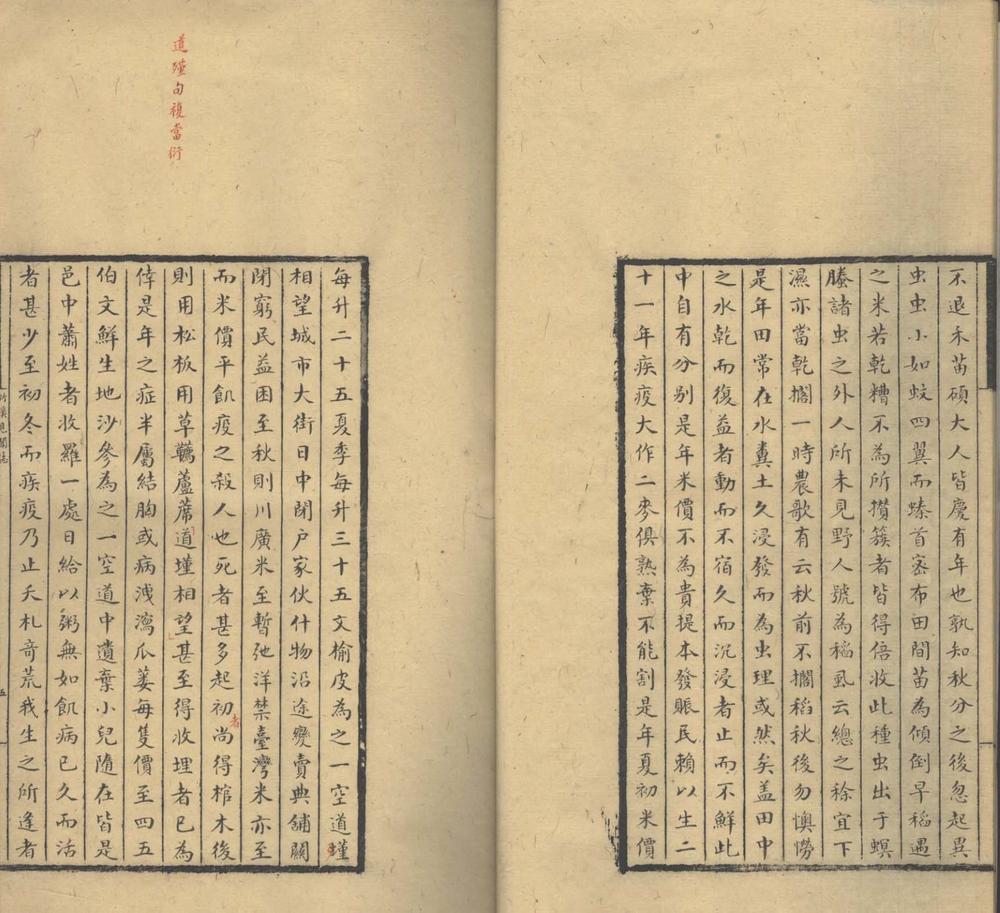 不退禾苗碩大人皆慶有年也孰知秋分之後忽起異
虫虫小如蚊四翼而螓首密布田間苗為傾倒早稻遇
之米若乾糟不為所攢簇者皆得倍收此種虫出于螟
螣諸虫之外人所未見野人號為稻虱云總之稌宜下
濕亦當乾擱一時農歌有云秋前不擱稻秋後勿懊憦
是年田常在水糞土久浸發而為虫理或然矣盖田中
之水乾而復益者動而不宿久而沉浸者止而不鮮此
中自有分别是年米價不為貴提本發賑民賴以生二
十一年疾疫大作二麥俱熟棄不能割是年夏初米價
道殣句複當衍
每升二十五夏季每升三十五文榆皮為之一空道殣
相望城市大街日中閉户家伙什物沿途變賣典舖關
閉窮民益困至秋則川廣米至暫弛洋禁臺灣米亦至
而米價平飢疫之殺人也死者甚多起初尚得棺木後
者
則用松板用草韉蘆蓆道墐相望甚至得收埋者已為
倖是年之症半屬結胸或病洩瀉瓜蔞每隻價至四五
伯文鮮生地沙參為之一空道中遺棄小兒隨在皆是
邑中蕭姓者收羅一處日給以粥無如飢病已久而活
者甚少至初冬而疾疫乃止夭札奇荒我生之所逢者
五